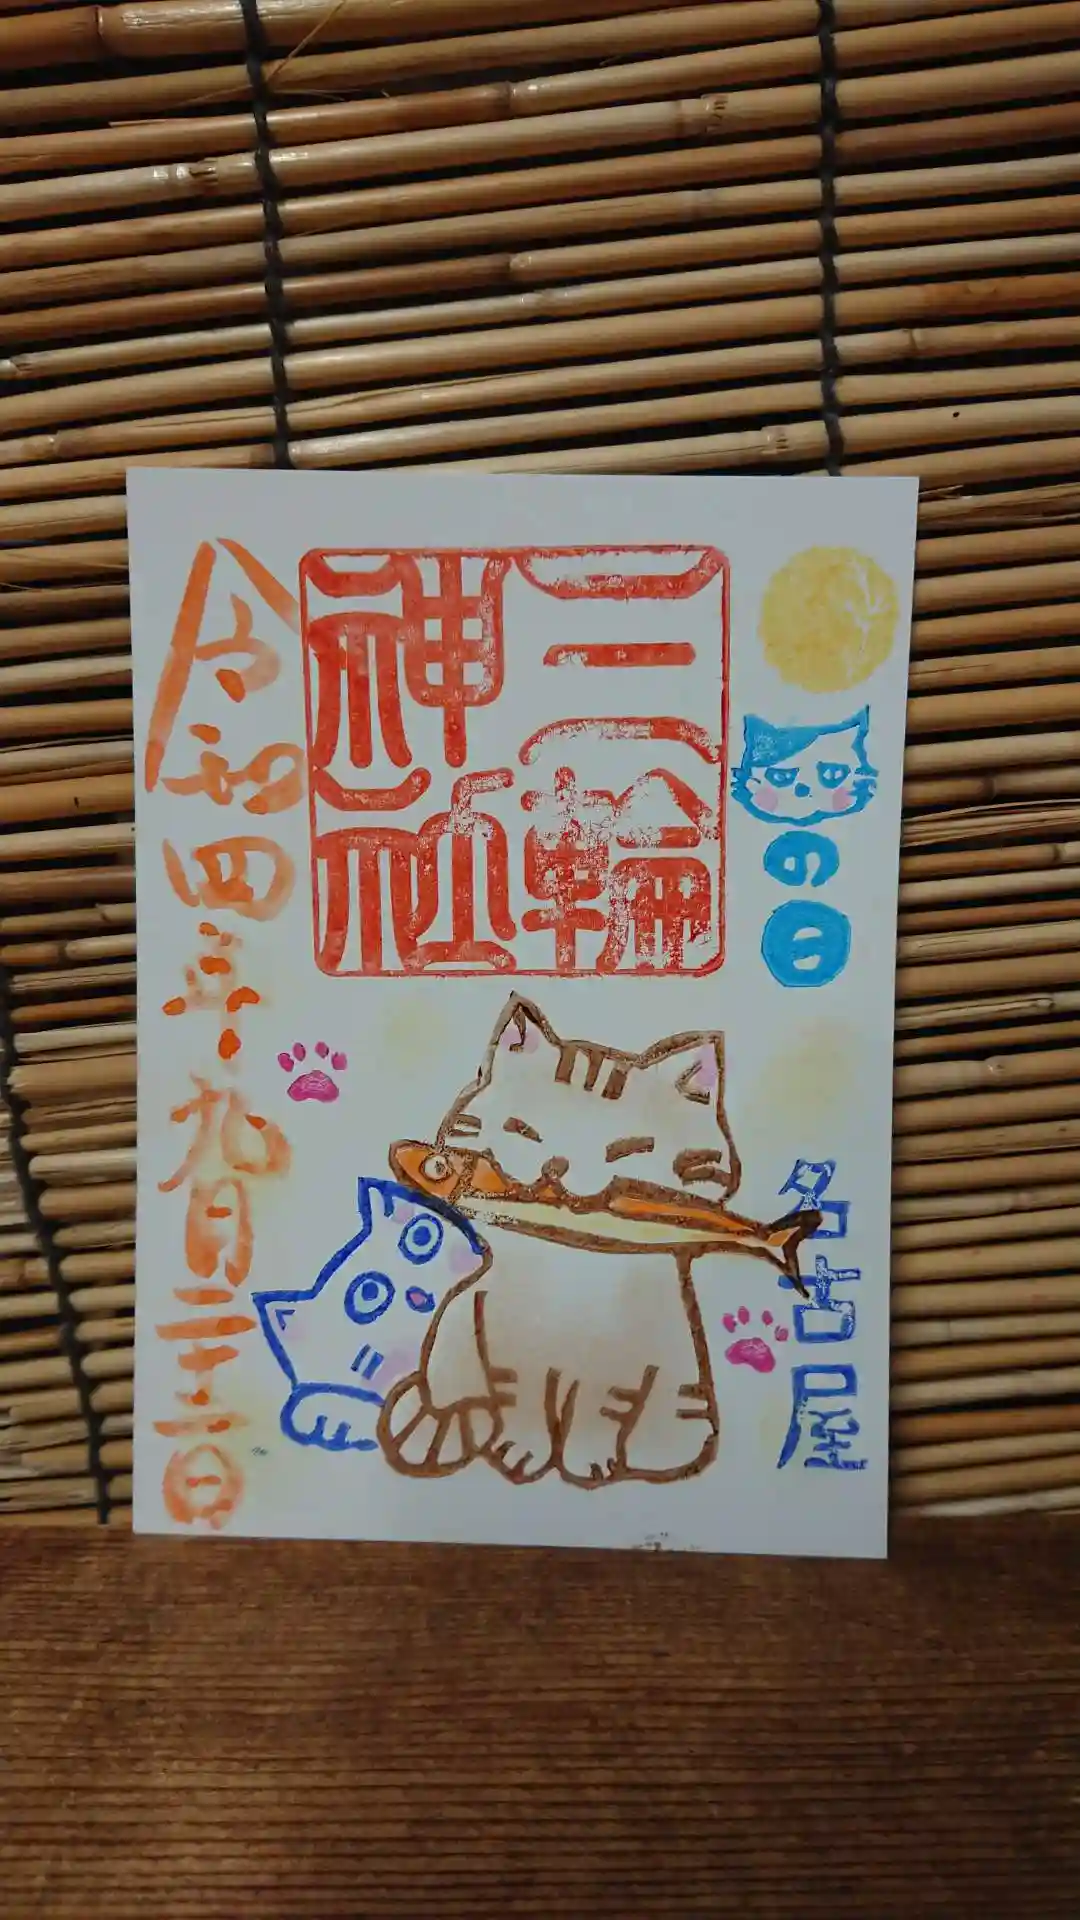 の日
名古屋
三輪
神社
令和四年九月二十二日